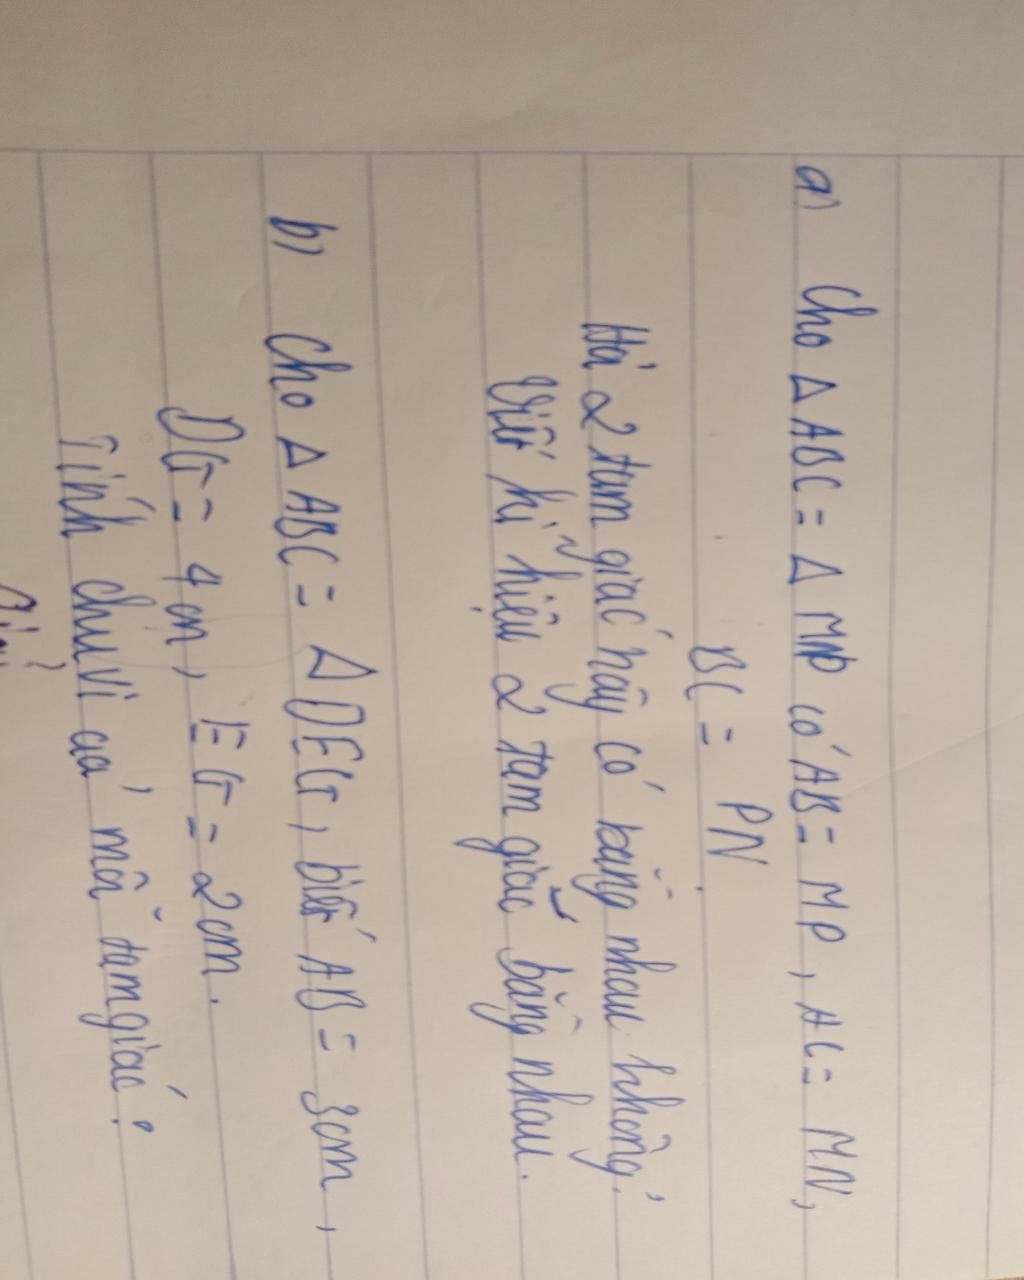 a) Cho Δ ABC = Δ MNP có AB = MP, AC = MN,
BC = PN
Hỏi 2 tam giác này có bằng nhau không?
Viết kí hiệu 2 tam giác bằng nhau.
b) Cho Δ ABC = Δ DEG, biết AB = 3cm,
DG = 4cm, EG = 2cm.
Tính chu vi của mỗi tam giác?